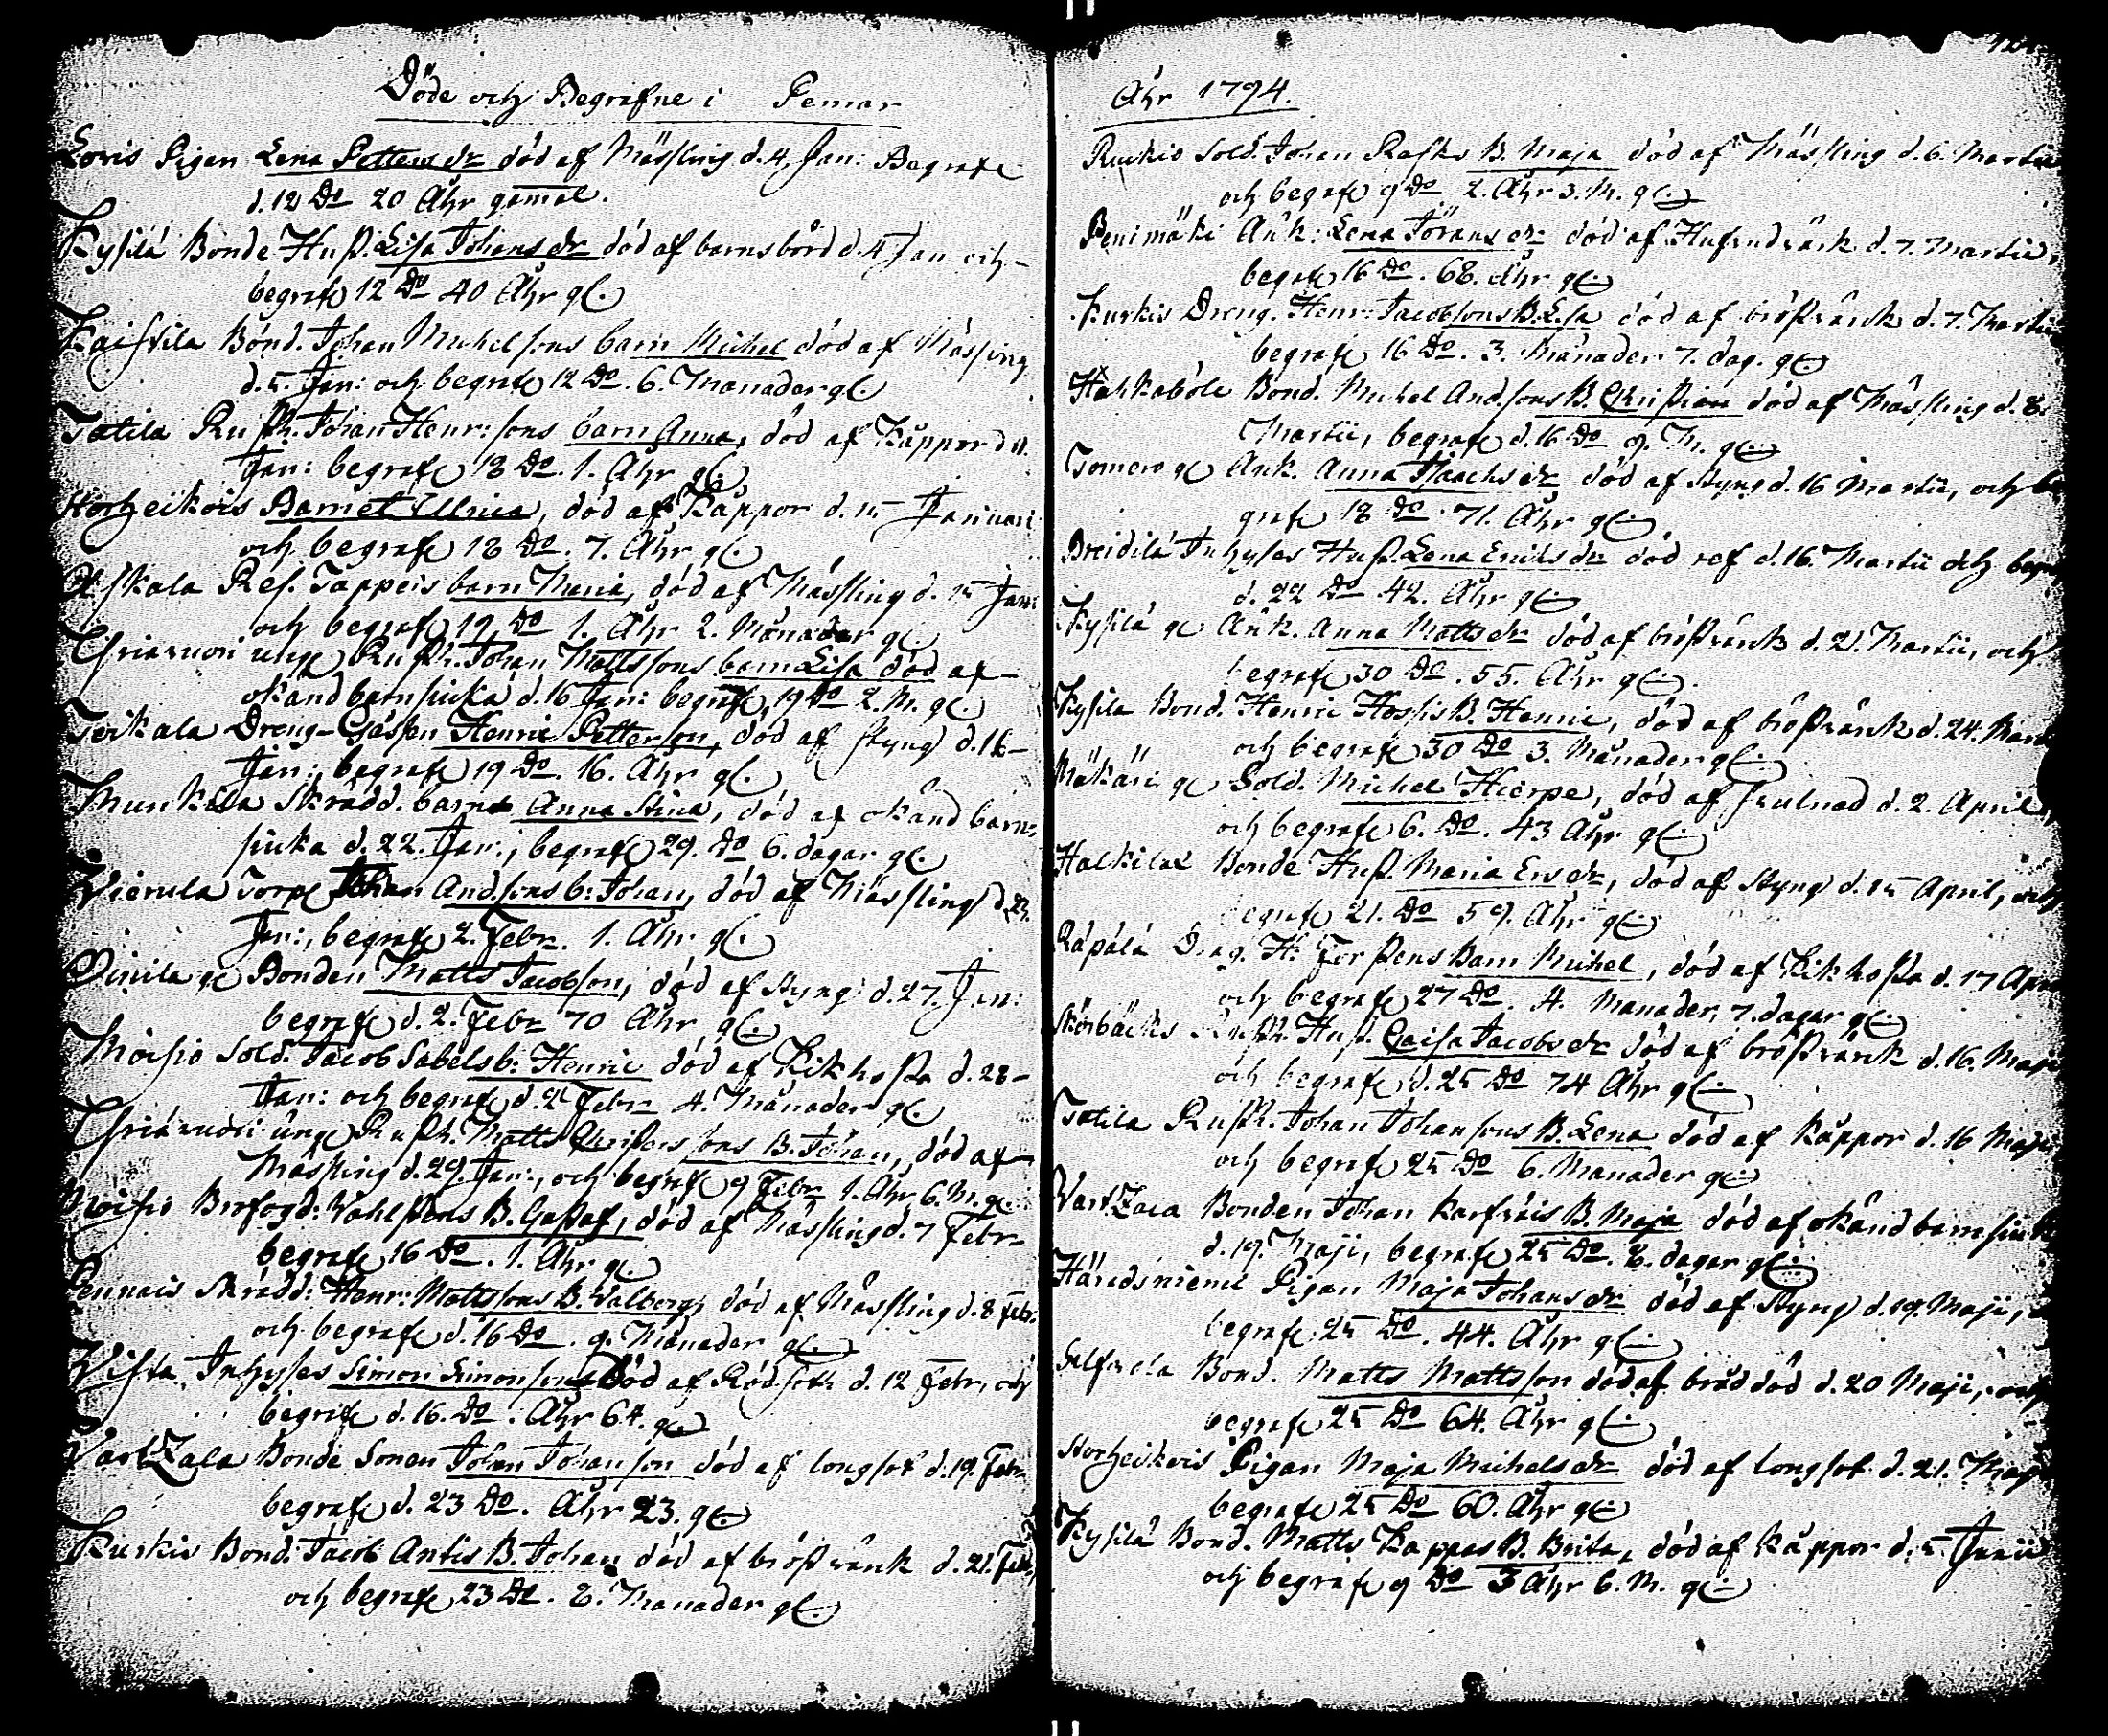 Döde och Begrafne i Pemar
Loris Pigan Lena Petters dr död af Mässling d. 4. Jan: Begrafe
d. 12 Do 20 Åhr gamal.
Kysilä Bonde Hust. Lisa Johans dr död af barnsbörd d. 4 Jan och
begrafe 12 Do 40 Åhr ge.
Bönd. Johan Michelsons barn Michel död af Mässling
d. 5. Jan: och begrafe 12 Do. 6. Månader ge.
Tatila Rusth. Johan Henr: sons barn Anna, död af Kåppor d. 11.
Jan: begrafe 18 Do. 1. Åhr ge.
Storheikois Barnet Ulrica, död af Kåppor d. 15 Januari
och begrafe 18 Do. 7. Åhr ge.
Askala Ref. Tappeis barn Maria, död af Mässling d. 15 Jan:
och begrafe 19. Do 1. Åhr 2. Månader ge.
unge Rusth. Johan Mattssons barn Lisa död af
okänd barnsiuka d. 16 Jan: begrafe, 19 Do 2. M. ge.
Dreng-Gåssen Henric Petterson, död af styng d. 16
Jan:, begrafe 19 Do. 16. Åhr ge.
Munkala Skrädd. barn Anna Stina, död af okänd barn-
siuka d. 22. Jan:, begrafe 29. Do 6. dagar ge.
Vierula Torp Johan Andsons b: Johan, död af Mässling d. 22.
Jan:, begrafe 2. Febr. 1. Åhr ge.
Oinila ge Bonden Matts Jacobson, död af styng d. 27. Jan:
begrafe d. 2. Febr 70 Åhr ge.
Moisio Sold. Jacob Sabels b: Henric död af Kikhosta d. 28
Jan: och begrafe d. 2 Febr 4. Månader ge.
unge Rusth. Matts sons B. Johan, död af
Mässling d. 29. Jan:, och begrafe 9 Febr 1. Åhr 6. M. ge.
Moisio Brofogd: Wahlstens B. Gustaf, död af Mässling d. 7 Febr
begrafe 16 Do. 1. Åhr ge.
Pennais Skrädd: Henr: Mattssons B. Walborg, död af Mässling d. 8 Febr.
och begrafe d. 16 Do. 9. Månader ge.
Vista Inhyses Simon Simonson död af Rödsoth d. 12 Febr, och
begrafe d. 16. Do. Åhr 64. ge.
Vartzala Bonde Sonen Johan Johanson död af longsot d. 19. Febr
begrafe d. 23 Do. Åhr 23. ge.
Kurkis Bond. Jacob Antis B. Johan död af bröstvärck d. 21. Febr,
och begrafe 23 Do. 8. Månader ge.
Åhr 1794.
Ruckio Sold. Johan Rasks B. Maja död af Mässling d. 6. Martii
och begrafe 9 Do. 2. Åhr 3. M. ge.
Penimäki Änk. Lena Jörans dr död af Hufvudvärk d. 7. Martii,
begrafe 16 Do. 68. Åhr ge.
Kurkis Dreng. Henr: Jacobsons B. Lisa död af bröstvärck d. 7. Martii
begrafe 16 Do. 3. Månader 7. dag. ge.
Bond. Michel Andsons B. Christian död af Mässling d. 8.
Martii, begrafe d. 16 Do 9. M. ge.
Änk. Anna Isaachs dr död af styng d. 16 Martii, och be
grafe 18 Do. 71. Åhr ge.
Inhyses Hust. Lena Eriks dr död d. 16. Martii och
d. 22 Do 42. Åhr ge.
Kysilä ge Änk. Anna Matts dr död af bröstvärck d. 21. Martii, och
begrafe 30 Do. 55. Åhr ge.
Kysilä Bond. Henric Hossis B. Henric, död af bröstvärck d. 24. Martii
och begrafe 30 Do 3. Månader ge.
ge Sold. Michel Hierpe, död af d. 2. April,
och begrafe 6. Do. 43 Åhr ge.
Halkilax Bonde Hust. Maria Ers dr, död af styng d. 15 April, och
begrafe 21. Do 59. Åhr ge.
Räpälä Drag. H: Forstens Barn Michel, död af Kikhosta d. 17 Apr
och begrafe 27 Do. 4. Manader, 7. dagar ge.
Rusth. Hust. Caisa Jacobs dr död af bröstvärck d. 16. Maji
och begrafe d. 25 Do 74 Åhr ge.
Tatila Rusth. Johan Johansons B. Lena död af Kåppor d. 16 Maji
och begrafe 25 Do 6. Manader ge.
Vartzala Bonden Johan B. Maja död af okänd barnsiuka
d. 19. Maji, begrafe 25 Do. 8. dagar ge.
Häredsniemi Pigan Maja Johans dr död af Styng d. 19. Maji,
begrafe 25 Do. 44. Åhr ge.
Bond. Matts Mattsson död af bråd död d. 20 Maji, och
begrafe 25 Do 64. Åhr ge.
Storheikois Pigan Maja Michels dr död af longsot d. 21. Maji
begrafe 25 Do 60. Åhr ge.
Kysilä Bond. Matts Kappas B. Brita, död af Kåppor d. 5. Junii
och begrafe 9 Do 3 Åhr 6. M. ge.